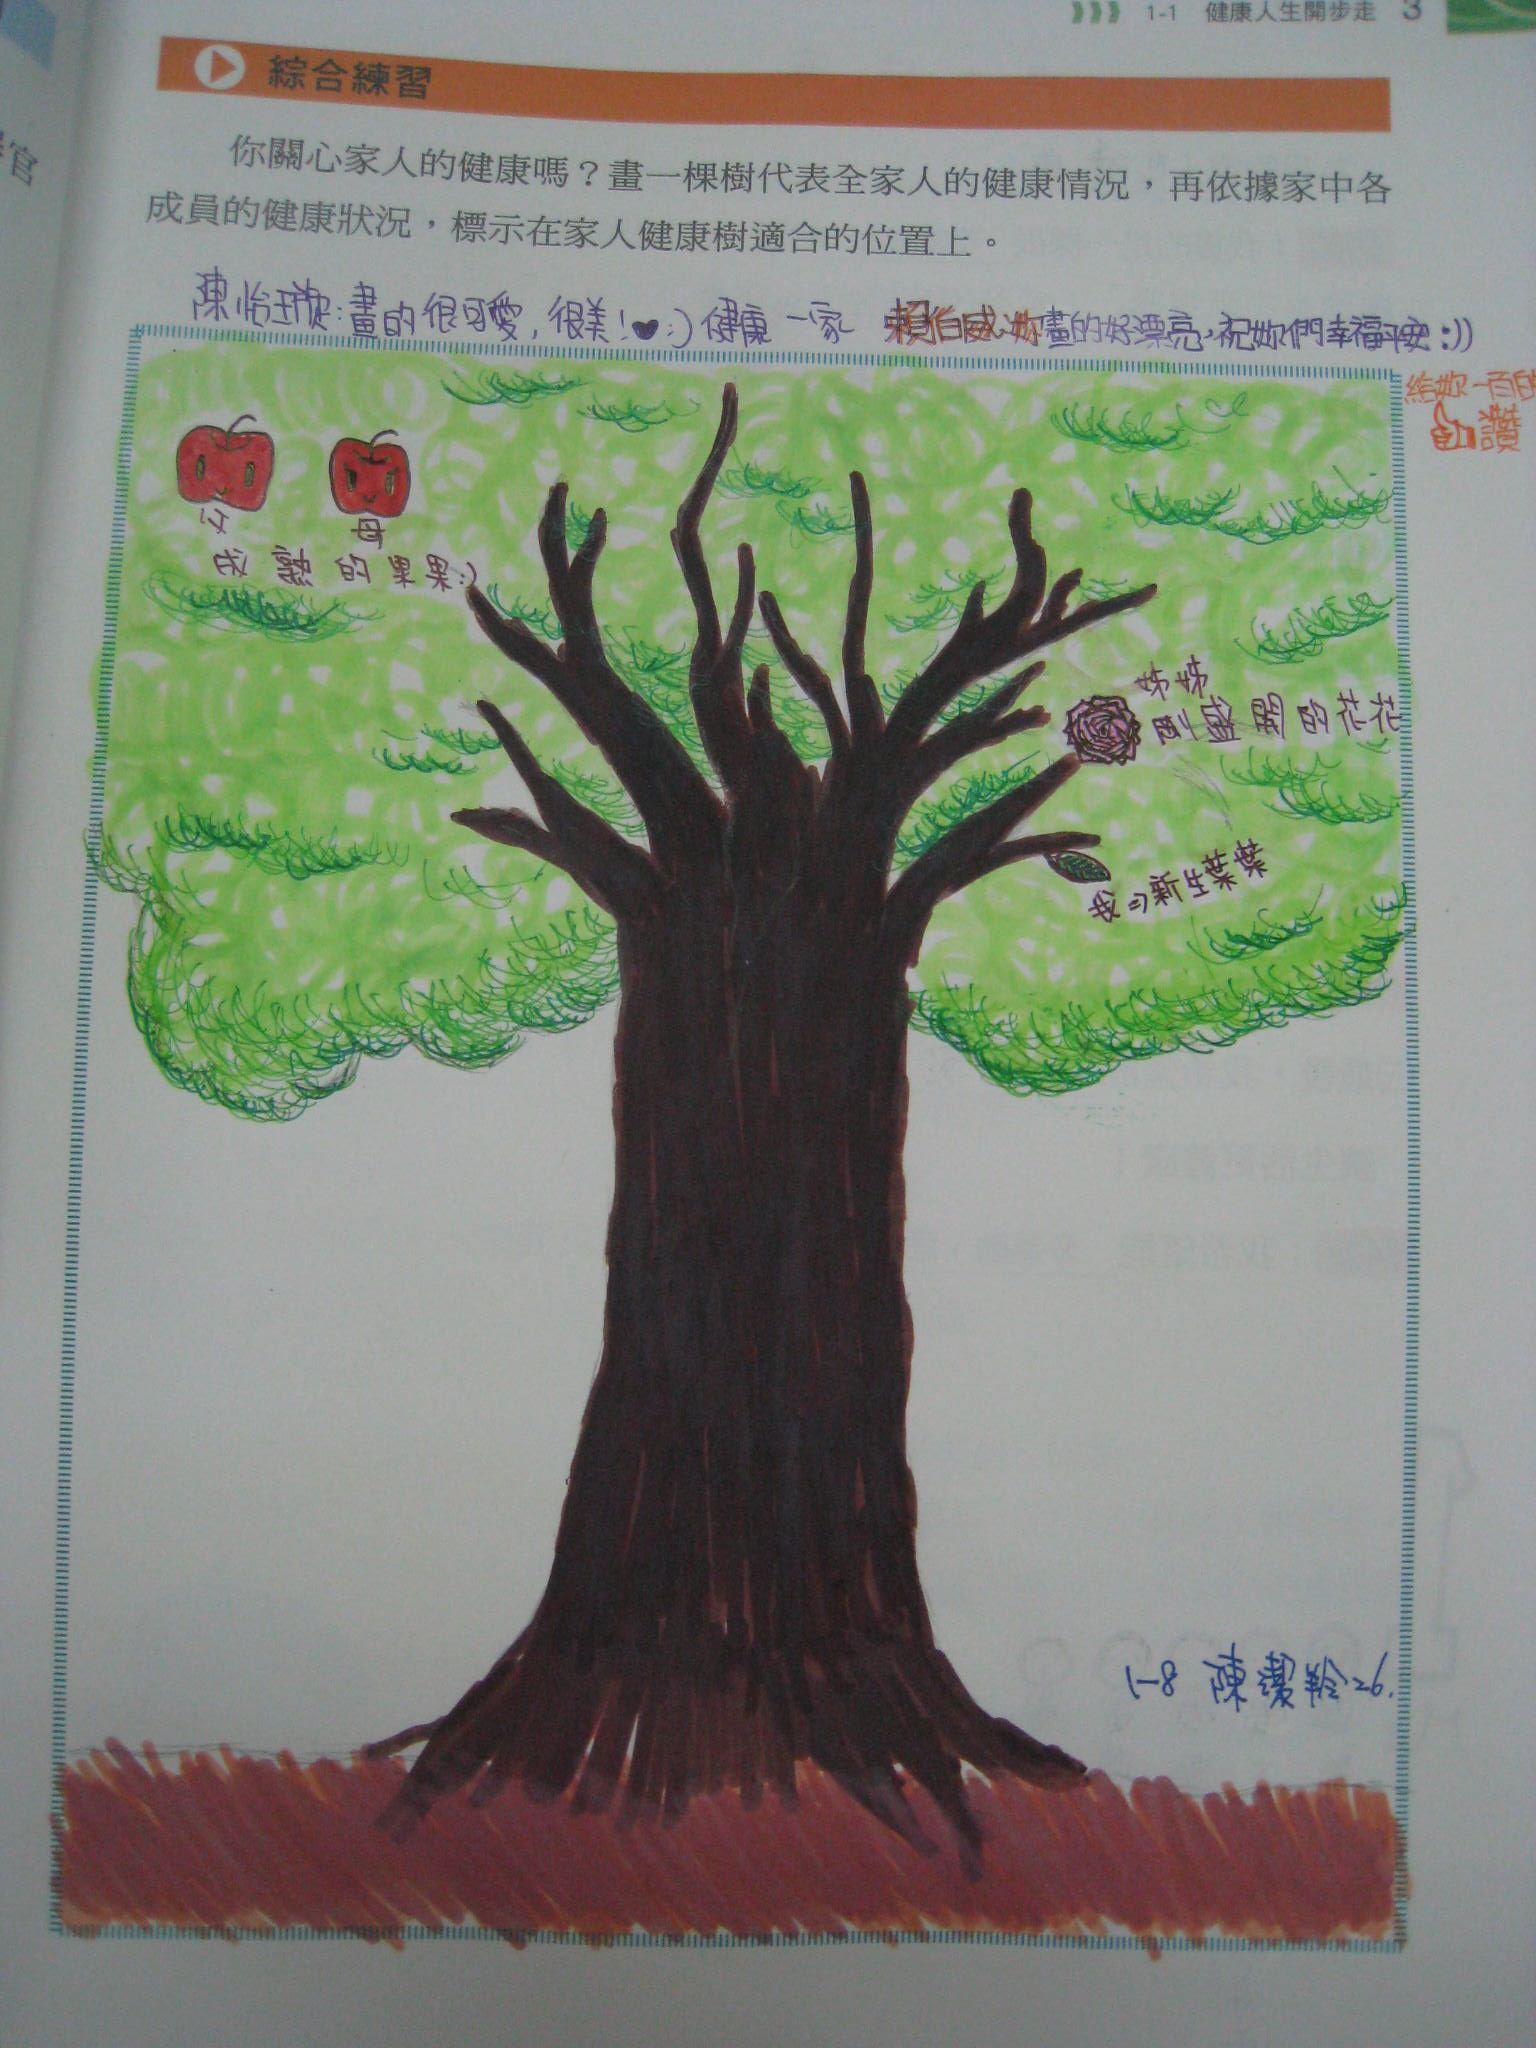 1-1 健康人生開步走 3
綜合練習
你關心家人的健康嗎？畫一棵樹代表全家人的健康情況，再依據家中各
成員的健康狀況，標示在家人健康樹適合的位置上。
陳怡璇:畫的很可愛,很美!♥:) 健康一家 賴伯威:妳畫的好漂亮,祝妳們幸福平安:))
給妳一百的
讚
父 母
成熟的果果:)
姊姊
盛開的花花
我=>新生葉葉
1-8 陳潔羚 26.
官